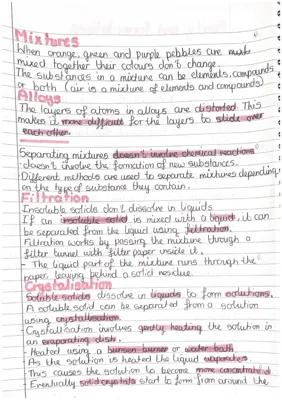 Mixtures
When orange, green and purple pebbles are
mixed together their colours don't change.
The substances in a mixture can be elements, compounds
or both (air is a mixture of elements and compounds)
Alloys
The layers of atoms in alloys are distorted. This
makes it more difficult for the layers to slide over
each other.
Separating mixtures doesn't involve chemical reactions
doesn't involve the formation of new substances.
Different methods are used to separate mixtures depending
on the type of substance they contain.
Filtration
Insoluble solids don't dissolve in liquids
If an insoluble solid is mixed with a liquid, it can
be separated from the liquid using filtration.
Filtration works by passing the mixture through a
filter funnel with filter paper inside it.
- The liquid part of the mixture runs through the
paper, leaving behind a solid residue.
Crystalisation
Soluble solids dissolve in liquids to form solutions.
A soluble solid can be separated from a solution
using crystalisation.
Crystallisation involves gently heating the solution in
an evaporating dish.
- Heated using a bunsen burner or water bath
- As the solution is heated the liquid evaporates.
This causes the solution to become more concentrated
- Eventually solid crystals start to form from around the